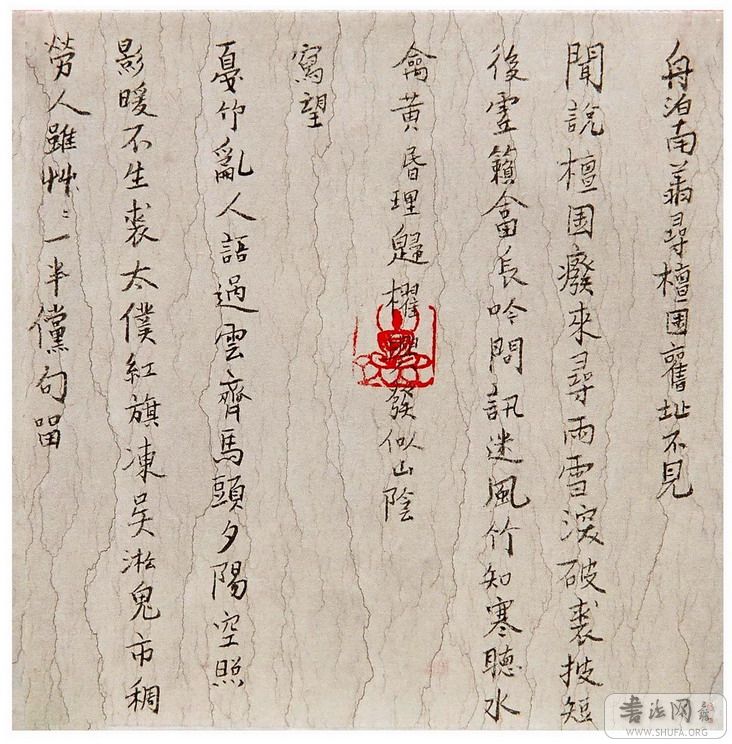 舟泊南翔尋檀園舊址不見
聞說檀園廢來尋雨雪深破裘披短
後虛籟畣長吟問訊迷風竹知寒聽水
禽黃昏理歸櫂興發似山陰
寫望
戛竹亂人語過雲齊馬頭夕陽空照
影暖不生裘太僕紅旗凍吳淞鬼市稠
勞人雖艸〻一半儻句畱
書法网
WWW.SHUFA.ORG